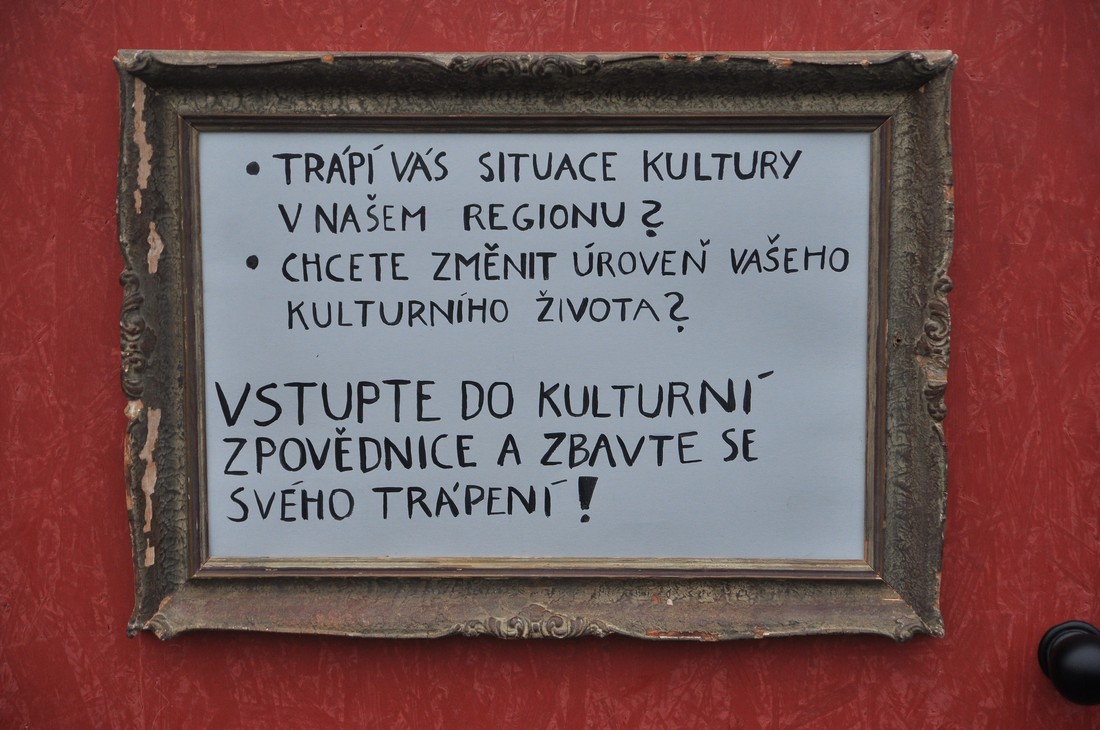 • TRÁPÍ VÁS SITUACE KULTURY
V NAŠEM REGIONU?
• CHCETE ZMĚNIT ÚROVEŇ VAŠEHO
KULTURNÍHO ŽIVOTA?
VSTUPTE DO KULTURNÍ
ZPOVĚDNICE A ZBAVTE SE
SVÉHO TRÁPENÍ!